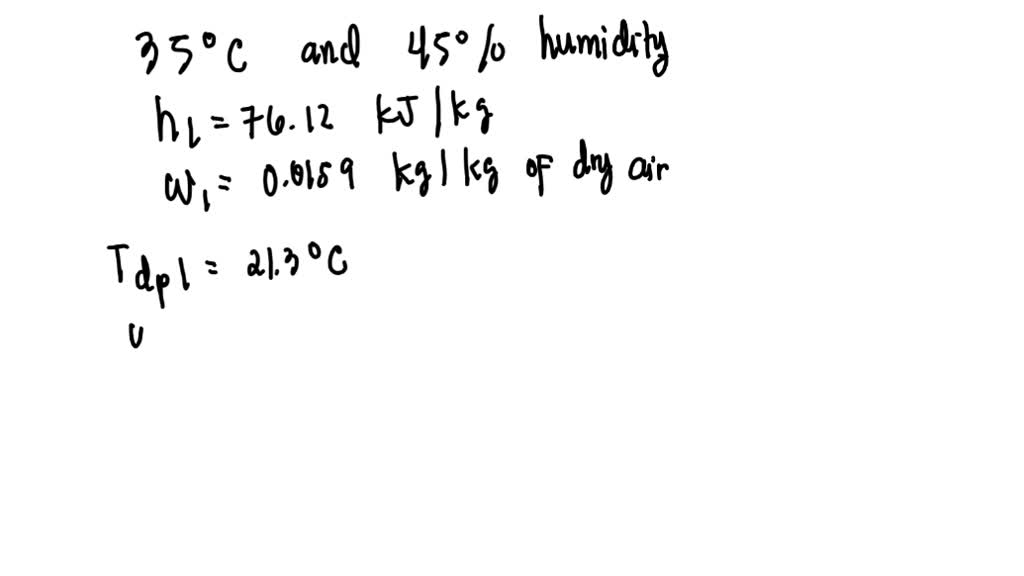 35°C and 45% humidity
h1 = 76.12 kJ/kg
w1 = 0.0159 kg/kg of dry air
Tdp1 = 21.3°C
v